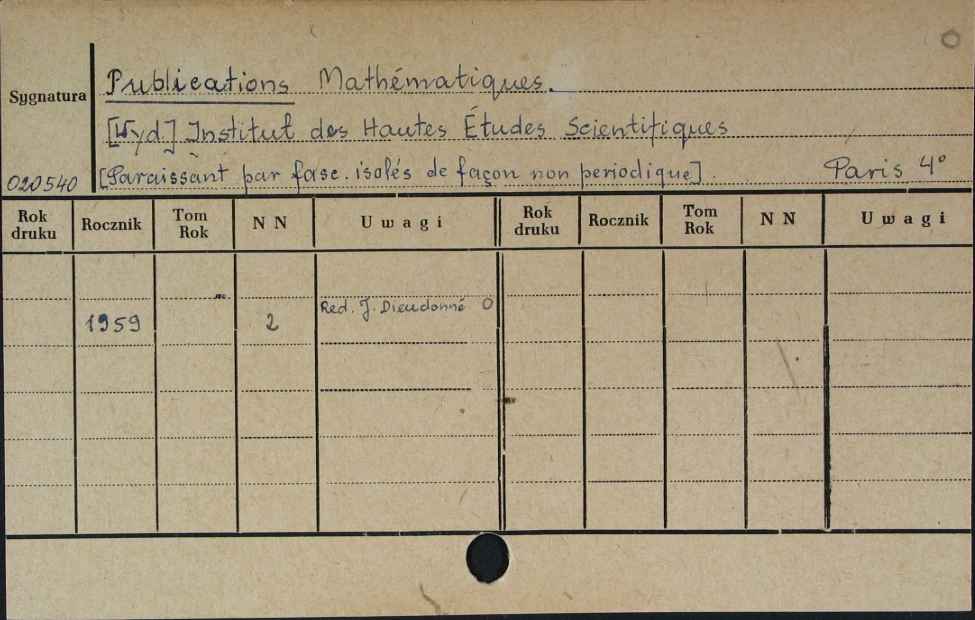 Publications Mathématiques.
Sygnatura
[Wyd.] Institut des Hautes Études Scientifiques
020540 [Paraissant par fasc. isolés de façon non periodique]. Paris 4°
Rok druku Rocznik Tom Rok N N Uwagi Rok druku Rocznik Tom Rok N N Uwagi
1959 2 Red. J. Dieudonné O